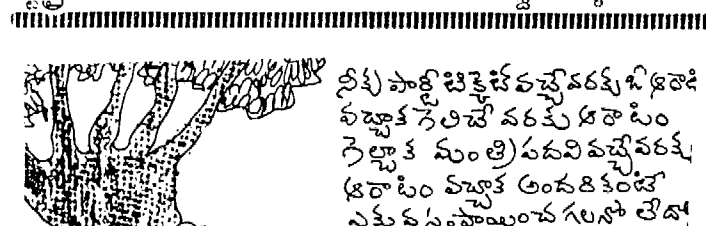 నీకు పార్టీ టిక్కెట్ వచ్చేవరకు ఓ ఆరాటం
వచ్చాక గెలిచే వరకు ఆరాటం
గెల్చాక మంత్రి పదవి వచ్చేవరకు
ఆరాటం వచ్చాక అందరికంటే
ఎక్కువ సంపాయించ గలనో లేదో